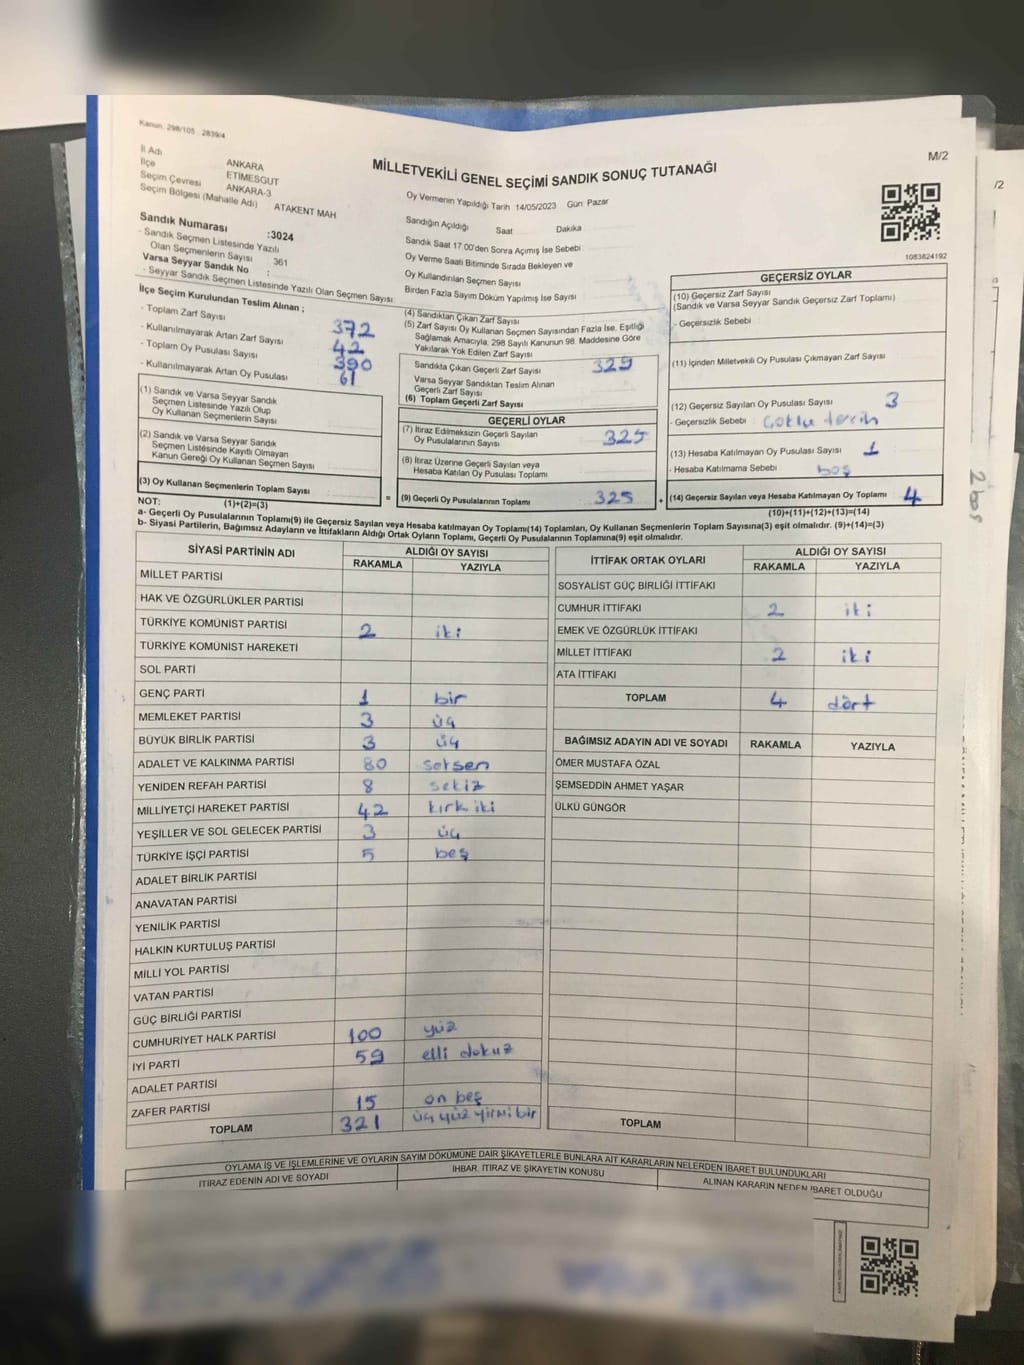 Kanun: 298/105 : 2839/4
M/2
/2
İl Adı ANKARA
İlçe ETİMESGUT
Seçim Çevresi ANKARA-3
Seçim Bölgesi (Mahalle Adı) ATAKENT MAH
MİLLETVEKİLİ GENEL SEÇİMİ SANDIK SONUÇ TUTANAĞI
Oy Vermenin Yapıldığı Tarih 14/05/2023 Gün: Pazar
Sandığın Açıldığı Saat Dakika
Sandık Saat 17.00'den Sonra Açımış İse Sebebi
Oy Verme Saati Bitiminde Sırada Bekleyen ve
Oy Kullandırılan Seçmen Sayısı
Birden Fazla Sayım Döküm Yapılmış İse Sayısı
1083824192
Sandık Numarası :3024
- Sandık Seçmen Listesinde Yazılı
Olan Seçmenlerin Sayısı 361
Varsa Seyyar Sandık No :
- Seyyar Sandık Seçmen Listesinde Yazılı Olan Seçmen Sayısı
İlçe Seçim Kurulundan Teslim Alınan ;
- Toplam Zarf Sayısı 372
- Kullanılmayarak Artan Zarf Sayısı 42
- Toplam Oy Pusulası Sayısı 390
- Kullanılmayarak Artan Oy Pusulası 61
(1) Sandık ve Varsa Seyyar Sandık
Seçmen Listesinde Yazılı Olup
Oy Kullanan Seçmenlerin Sayısı
(2) Sandık ve Varsa Seyyar Sandık
Seçmen Listesinde Kayıtlı Olmayan
Kanun Gereği Oy Kullanan Seçmen Sayısı
(3) Oy Kullanan Seçmenlerin Toplam Sayısı
(1)+(2)=(3)
(4) Sandıktan Çıkan Zarf Sayısı
(5) Zarf Sayısı Oy Kullanan Seçmen Sayısından Fazla İse, Eşitliği
Sağlamak Amacıyla, 298 Sayılı Kanunun 98. Maddesine Göre
Yakılarak Yok Edilen Zarf Sayısı
Sandıkta Çıkan Geçerli Zarf Sayısı 329
Varsa Seyyar Sandıktan Teslim Alınan
Geçerli Zarf Sayısı
(6) Toplam Geçerli Zarf Sayısı
GEÇERLİ OYLAR
(7) İtiraz Edilmeksizin Geçerli Sayılan
Oy Pusulalarının Sayısı 325
(8) İtiraz Üzerine Geçerli Sayılan veya
Hesaba Katılan Oy Pusulası Toplamı
= (9) Geçerli Oy Pusulalarının Toplamı 325 +
GEÇERSİZ OYLAR
(10) Geçersiz Zarf Sayısı
(Sandık ve Varsa Seyyar Sandık Geçersiz Zarf Toplamı)
- Geçersizlik Sebebi :
(11) İçinden Milletvekili Oy Pusulası Çıkmayan Zarf Sayısı
(12) Geçersiz Sayılan Oy Pusulası Sayısı 3
- Geçersizlik Sebebi : Çoklu tercih
(13) Hesaba Katılmayan Oy Pusulası Sayısı 1
- Hesaba Katılmama Sebebi boş
(14) Geçersiz Sayılan veya Hesaba Katılmayan Oy Toplamı 4
(10)+(11)+(12)+(13)=(14)
2 boş
NOT:
a- Geçerli Oy Pusulalarının Toplamı(9) ile Geçersiz Sayılan veya Hesaba katılmayan Oy Toplamı(14) Toplamları, Oy Kullanan Seçmenlerin Toplam Sayısına(3) eşit olmalıdır. (9)+(14)=(3)
b- Siyasi Partilerin, Bağımsız Adayların ve İttifakların Aldığı Ortak Oyların Toplamı, Geçerli Oy Pusulalarının Toplamına(9) eşit olmalıdır.
SİYASİ PARTİNİN ADI ALDIĞI OY SAYISI
RAKAMLA YAZIYLA
MİLLET PARTİSİ
HAK VE ÖZGÜRLÜKLER PARTİSİ
TÜRKİYE KOMÜNİST PARTİSİ 2 iki
TÜRKİYE KOMÜNİST HAREKETİ
SOL PARTİ
GENÇ PARTİ 1 bir
MEMLEKET PARTİSİ 3 üç
BÜYÜK BİRLİK PARTİSİ 3 üç
ADALET VE KALKINMA PARTİSİ 80 seksen
YENİDEN REFAH PARTİSİ 8 sekiz
MİLLİYETÇİ HAREKET PARTİSİ 42 kırk iki
YEŞİLLER VE SOL GELECEK PARTİSİ 3 üç
TÜRKİYE İŞÇİ PARTİSİ 5 beş
ADALET BİRLİK PARTİSİ
ANAVATAN PARTİSİ
YENİLİK PARTİSİ
HALKIN KURTULUŞ PARTİSİ
MİLLİ YOL PARTİSİ
VATAN PARTİSİ
GÜÇ BİRLİĞİ PARTİSİ
CUMHURİYET HALK PARTİSİ 100 yüz
İYİ PARTİ 59 elli dokuz
ADALET PARTİSİ
ZAFER PARTİSİ 15 on beş
TOPLAM 321 üç yüz yirmi bir
İTTİFAK ORTAK OYLARI ALDIĞI OY SAYISI
RAKAMLA YAZIYLA
SOSYALİST GÜÇ BİRLİĞİ İTTİFAKI
CUMHUR İTTİFAKI 2 iki
EMEK VE ÖZGÜRLÜK İTTİFAKI
MİLLET İTTİFAKI 2 iki
ATA İTTİFAKI
TOPLAM 4 dört
BAĞIMSIZ ADAYIN ADI VE SOYADI RAKAMLA YAZIYLA
ÖMER MUSTAFA ÖZAL
ŞEMSEDDİN AHMET YAŞAR
ÜLKÜ GÜNGÖR
TOPLAM
OYLAMA İŞ VE İŞLEMLERİNE VE OYLARIN SAYIM DÖKÜMÜNE DAİR ŞİKAYETLERLE BUNLARA AİT KARARLARIN NELERDEN İBARET BULUNDUKLARI
İTİRAZ EDENİN ADI VE SOYADI İHBAR, İTİRAZ VE ŞİKAYETİN KONUSU ALINAN KARARIN NEDEN İBARET OLDUĞU